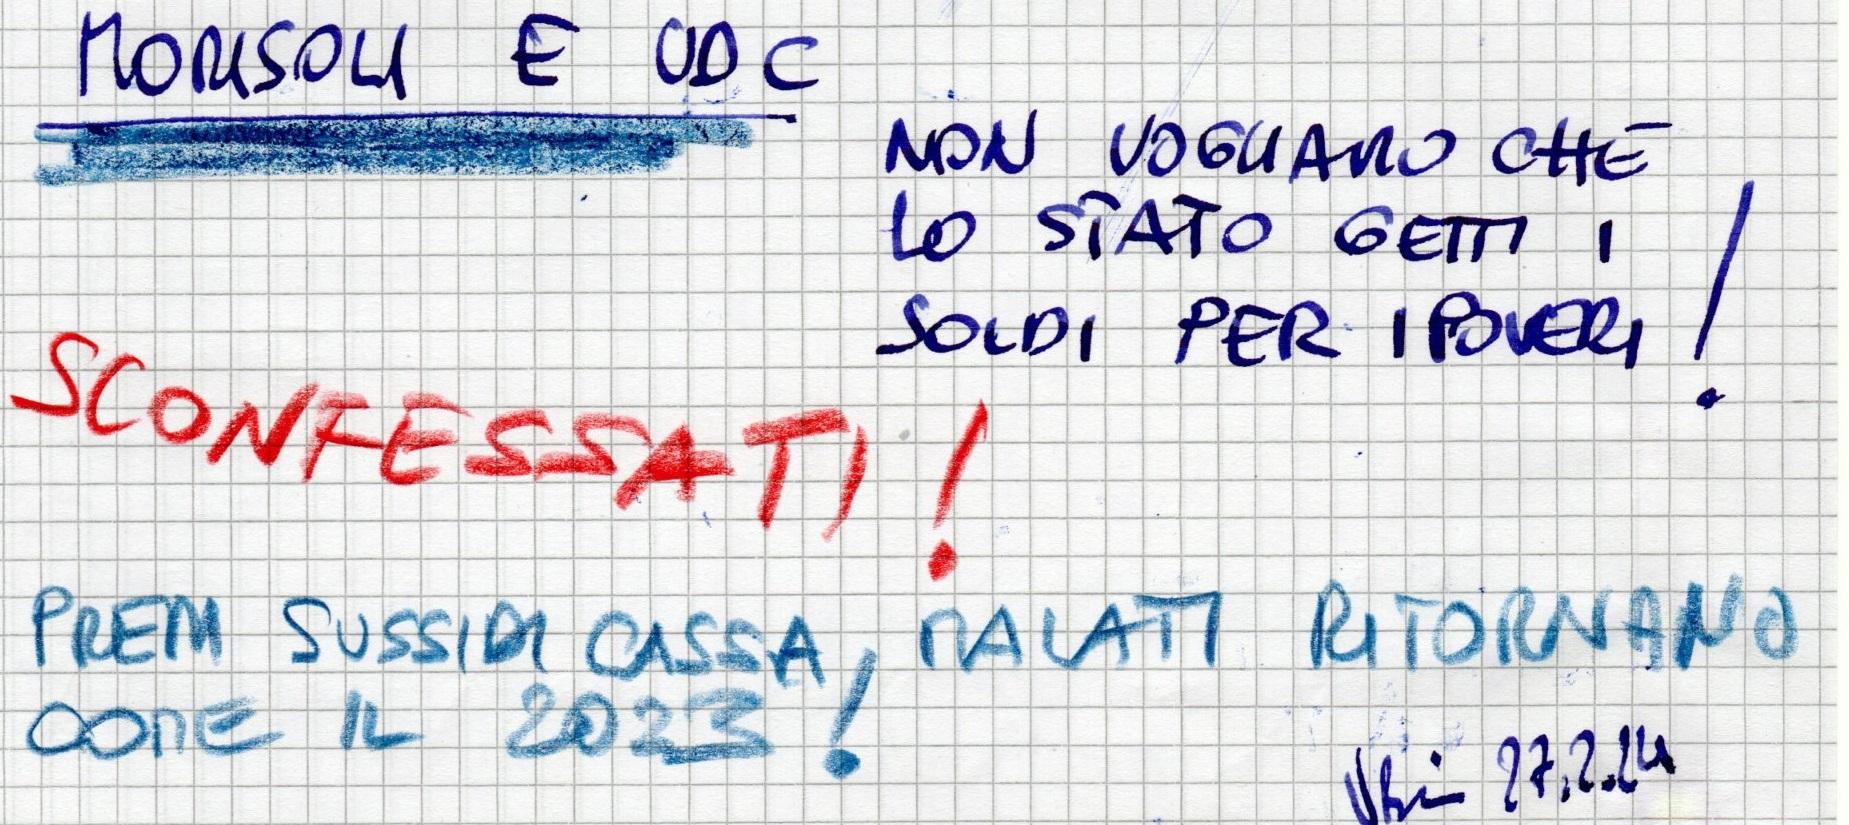 MORISOLI E UDC
NON VOGLIAMO CHE
LO STATO GETTI I
SOLDI PER I POVERI!
SCONFESSATI!
PREMI SUSSIDI CASSA MALATI RITORNANO
COME IL 2023!
27.2.24